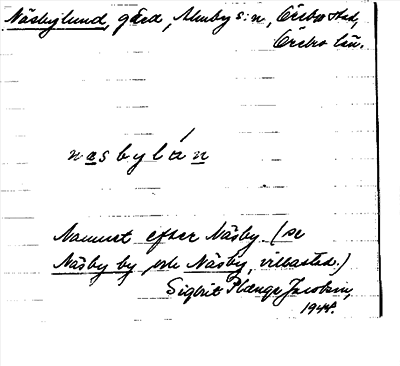 Näsbylund, gård, Almby s:n, Örebro stad,
Örebro län.
näsbylán
Namnet efter Näsby (se
Näsby by och Näsby, villastad.)
Sigbrit Plænge Jacobson,
1948.